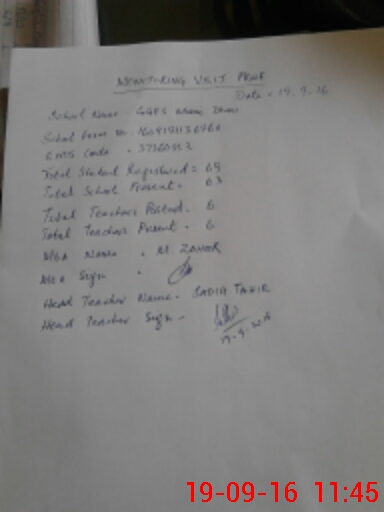 MONITORING VISIT PROF
Date - 19-9-16
School Name - GGES
School Form No
EMIS Code - 37360353
Total Student Registered = 68
Total School Present = 63
Total Teachers Posted - 6
Total Teachers Present - 6
MEA Name - M. ZAHOOR
MEA Sign -
Head Teacher Name - SADIA TAHIR
Head Teacher Sign -
19-9-2016
19-09-16 11:45